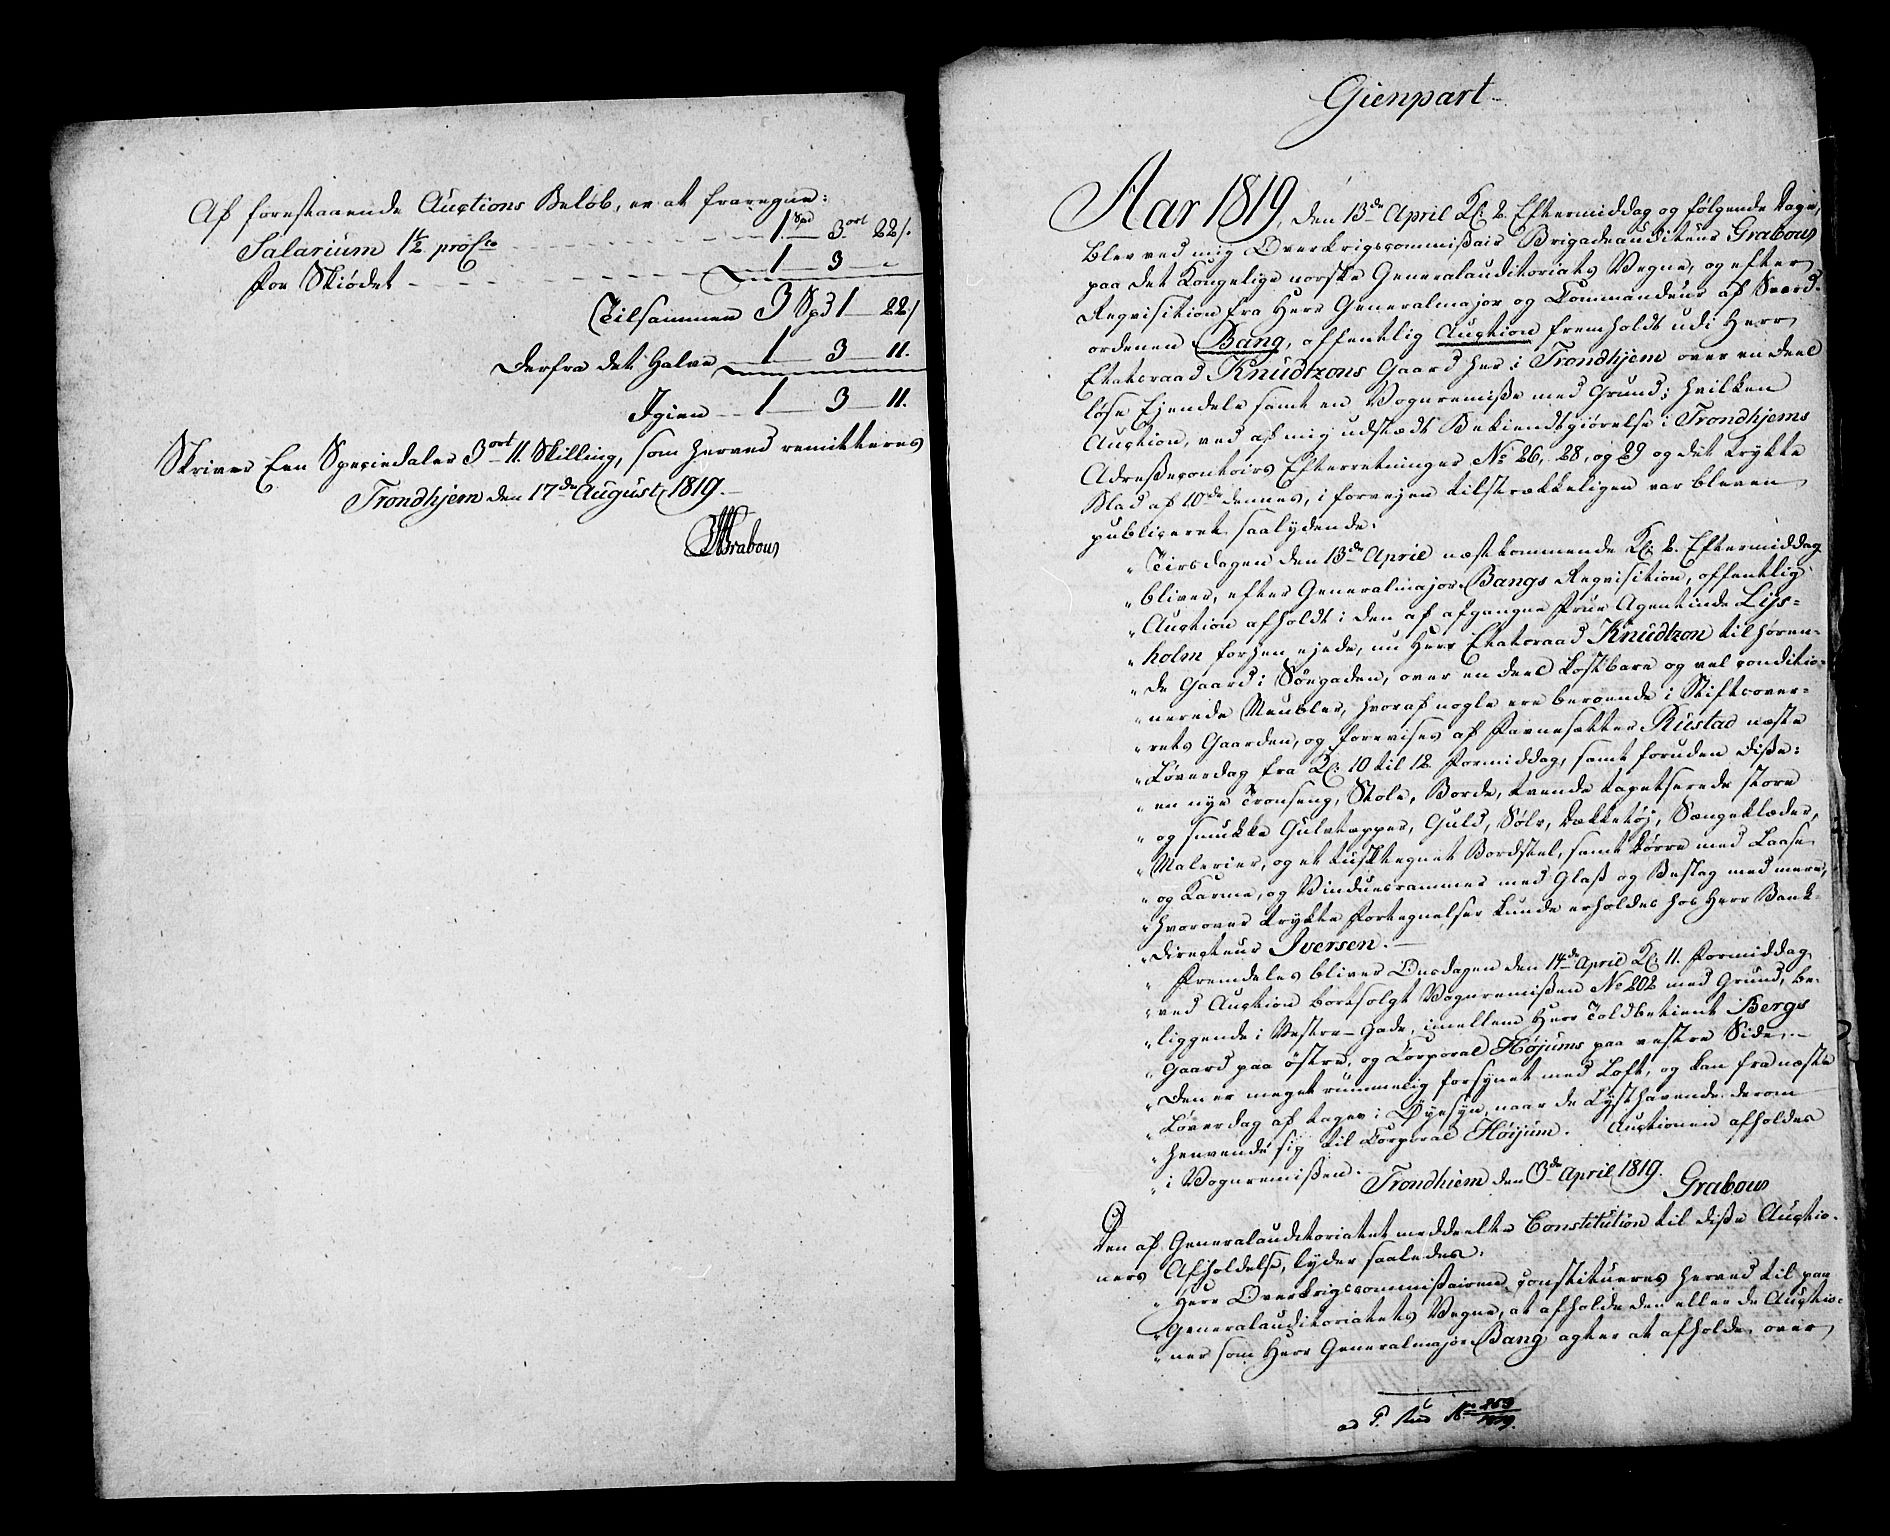 Af forestaaende Auctions Beløb, er at fraregne:
Salarium 1½ proCto - - - 1 Spd — 3 ort 22 s.
For Skiødet - - - 1 — 3 — "
Tilsammen 3 Spd 1 — 22 s
Derfra det Halve 1 — 3 — 11.
Igien - - 1 — 3 — 11.
Skriver Een Speciedaler 3 ort 11. Skilling, som herved remitteres
Trondhjem den 17de August, 1819. —
Grabow
Gienpart
Aar 1819, den 13de April Kl: 2. Eftermiddag og følgende Dage,
blev ved mig Overkrigscommißair Brigadeauditeur Grabow
paa det Kongelige norske Generalauditoriats Vegne, og efter
Reqvisition fra Herr Generalmajor og Commandeur af Sværd-
ordenen Bang, offentlig Auction fremholdt udi Herr
Etatsraad Knudtzons Gaard her i Trondhjem over en deel
løse Ejendele samt en Vognremiße med Grund; hvilken
Auction, ved af mig udstædt Bekiendtgiørelse i Trondhjems
Adreßecontoirs Efterretninger No 26, 28, og 29 og det trykte
Blad af 10de dennes, i forvejen tilstrækkeligen var bleven
publiceret saalydende:
„Tirsdagen den 13de April næstkommende Kl: 2. Eftermiddag
„bliver, efter Generalmajor Bangs Reqvisition, offentlig
„Auction afholdt i den af afgangne Frue Agentinde Lys-
„holm forhen ejede, nu Herr Etatsraad Knudtzon tilhøren-
„de Gaard i Søegaden, over en deel kostbare og vel conditio-
„nerede Meubler, hvoraf nogle ere beroende i Stiftsover-
„rets Gaarden, og forevises af Parnesætter Rustad næste
„Løverdag fra Kl: 10 til 12. Formiddag, samt foruden diße:
„en nye Tronseng, Stole, Borde, tvende tapetserede store
„og smukke Gulvtæpper, Guld, Sølv, Dækketøj, Sængeklæder,
„Malerier, og et tusktegnet Bordstel, samt Dørre med Laase
„og Karme, og Vinduesrammer med Glaß og Beslag med mere,
„hvorover trykte Fortegnelser kunde erholdes hos Herr Bank-
„directeur Iversen. —
„Fremdeles bliver Onsdagen den 14de April Kl: 11. Formiddag
„ved Auction bortsolgt Vognremißen No 202 med Grund, be-
„liggende i Vestre-Gade, imellem Herr Toldbetient Bergs
„Gaard paa østre, og Corporal Højums paa vestre Side, —
„Den er meget rummelig forsynet med Loft, og kan fra næste
„Løverdag af tages i Øyesyn, naar de Lysthavende derom
„henvende sig til Corporal Høijum. Auctionen afholdes
„i Vognremißen. — Trondhiem den 3de April 1819. Grabow
Den af Generalauditoriatet meddeelte Constitution til diße Auctio-
ners Afholdelse, lyder saaledes:
„Herr Overkrigscommißairen constitueres herved til paa
„Generalauditoriatets Vegne, at afholde den eller de Auctio-
„ner som Herr Generalmajor Bang agter at afholde over
ad No 259/1819.